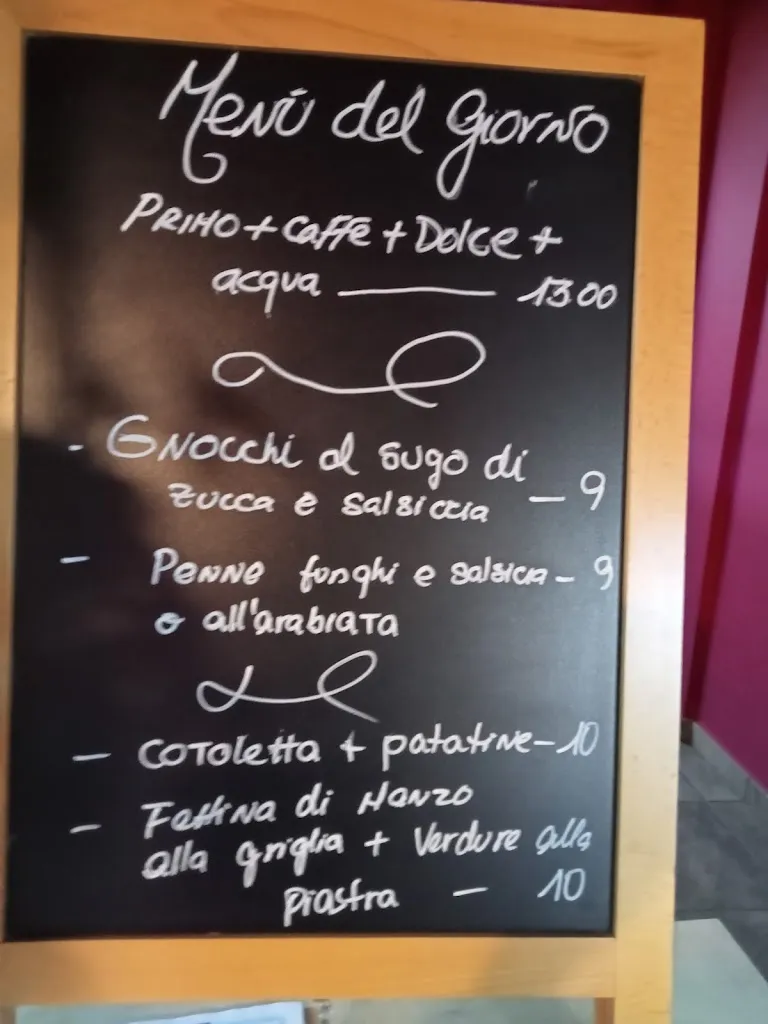 Menù del Giorno
PRIMO + Caffè + Dolce +
acqua — 13 00
- GNOCCHI al sugo di
zucca e salsiccia — 9
- Penne funghi e salsicia - 9
o all'arabiata
- Cotoletta + patatine - 10
- Fettina di Manzo
alla griglia + Verdure alla
piastra — 10